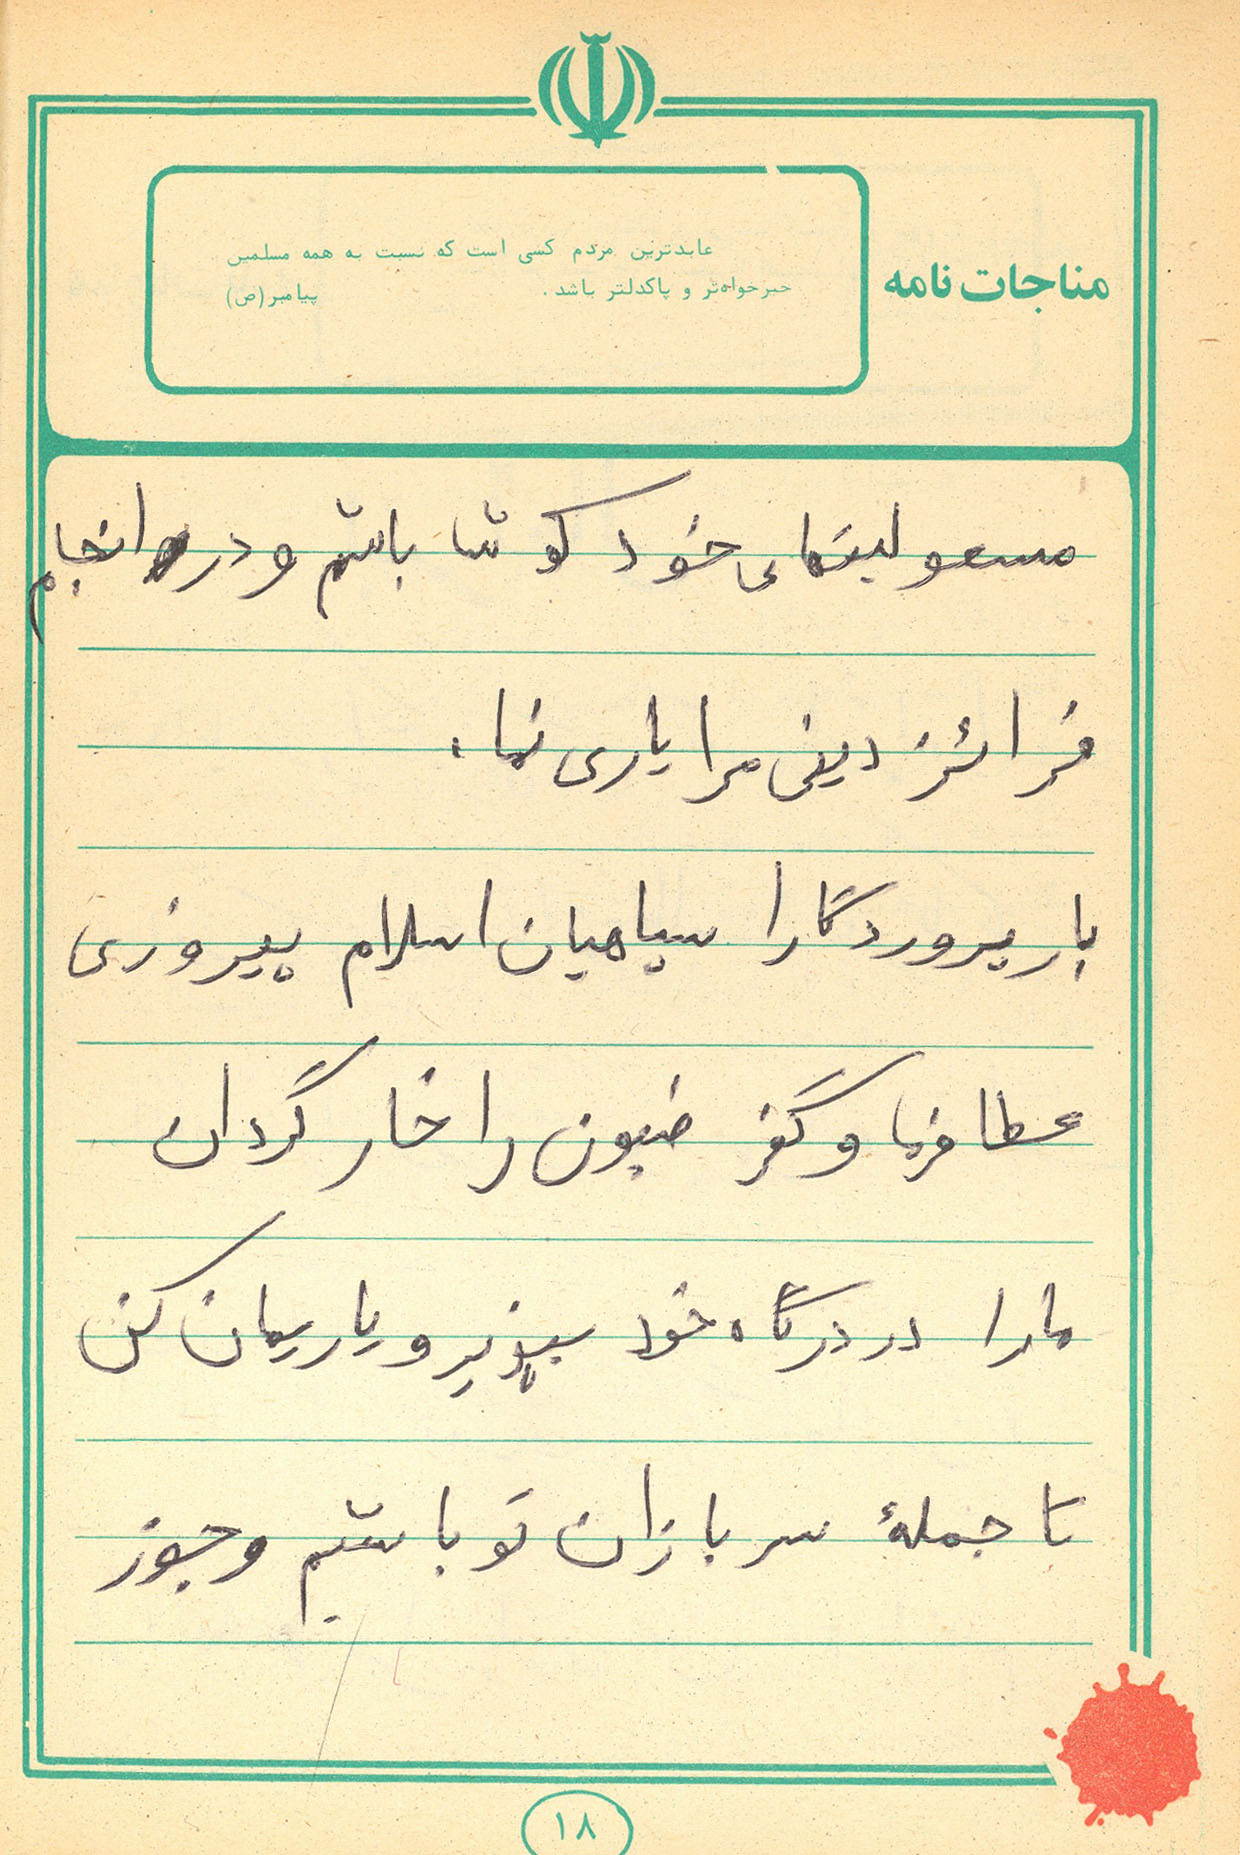 مناجات نامه
عابدترین مردم کسی است که نسبت به همه مسلمین
خیرخواه‌تر و پاکدلتر باشد. پیامبر(ص)
مسعولیتهای خود کوشا باشم و در انجام
فرائز دینی مرا یاری نما.
بار پروردگارا سپاهیان اسلام پیروزی
عطا فرما و کفر را خار گردان
ما را در درگاه خود بپذیر و یاریمان کن
تا جملهٔ سربازان تو باشیم و جوز
۱۸